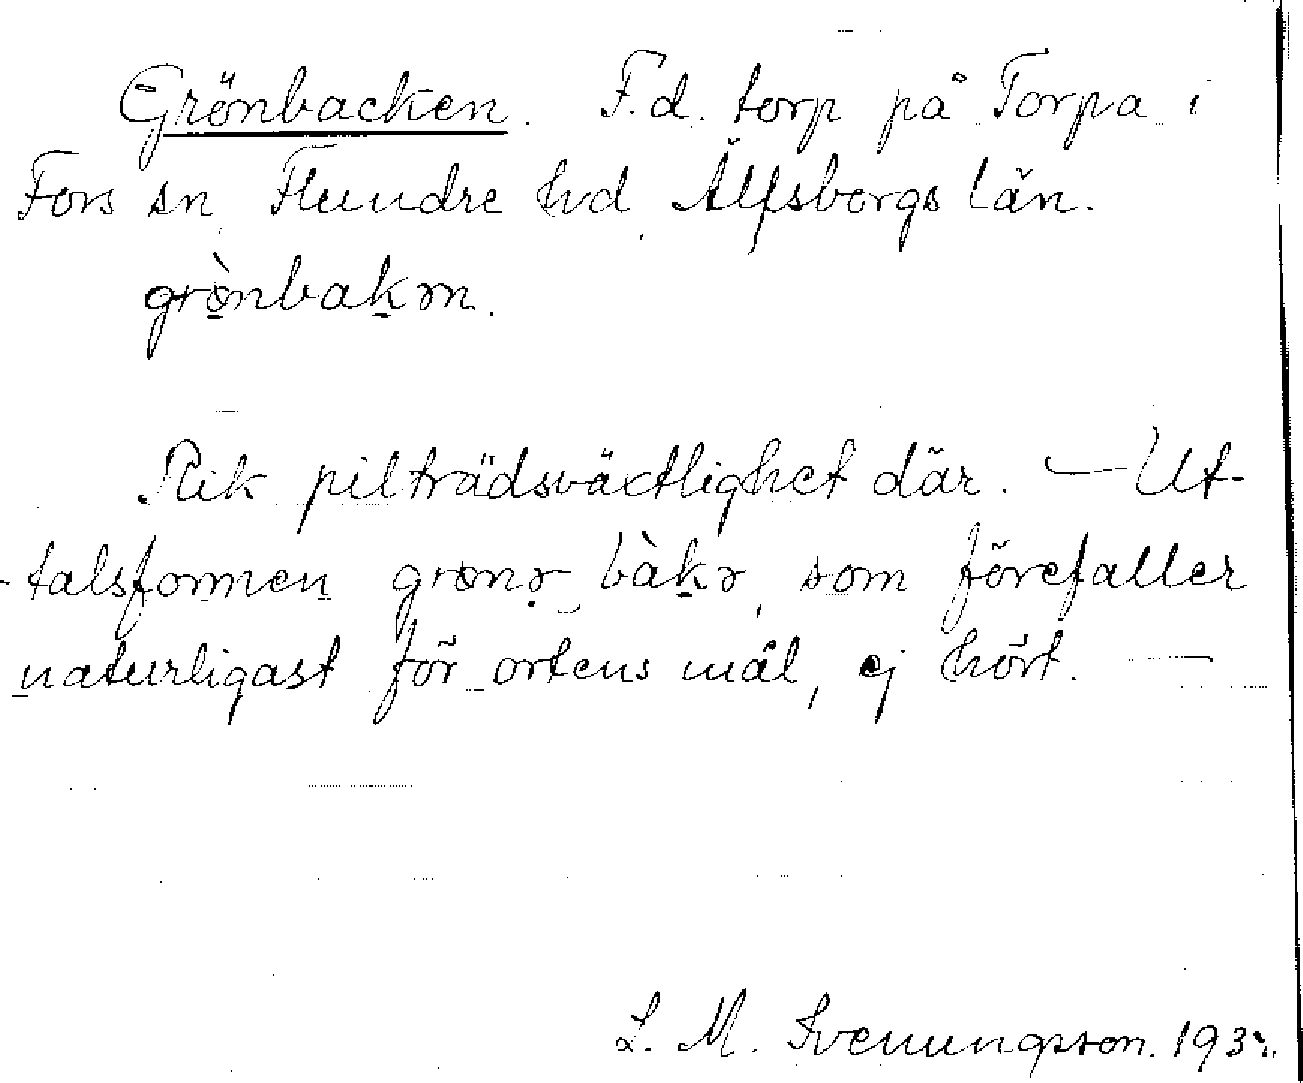 Grönbacken. F.d. torp på Torpa i
Fors sn, Flundre hd, Älfsborgs län.
grònbakən.
Rik pilträdsväxtlighet där. — Ut-
talsformen grønə bàkə, som förefaller
naturligast för ortens mål, ej hört. —
L. M. Svenungsson.